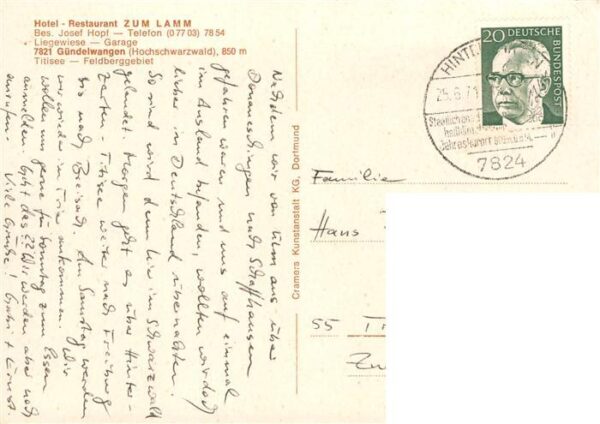 Hotel - Restaurant ZUM LAMM
Bes. Josef Hopf — Telefon (0 77 03) 78 54
Liegewiese — Garage
7821 Gündelwangen (Hochschwarzwald), 850 m
Titisee — Feldberggebiet
Nachdem wir von Ulm aus über
Donaueschingen nach Schaffhausen
gefahren waren und uns auf einmal
im Ausland befanden, wollten wir doch
lieber in Deutschland übernachten.
So sind wir denn hier im Schwarzwald
gelandet. Morgen geht es über Hinter-
zarten - Titisee weiter nach Freiburg
bis nach Breisach. Am Samstag werden
wir wieder in Trier ankommen. Wir
wollen uns gerne für Sonntag zum Essen
anmelden. Geht das ?? Wir werden aber noch
anrufen. Viele Grüße!
Cramers Kunstanstalt KG, Dortmund
20 DEUTSCHE
BUNDESPOST
7824
Familie
Hans
55